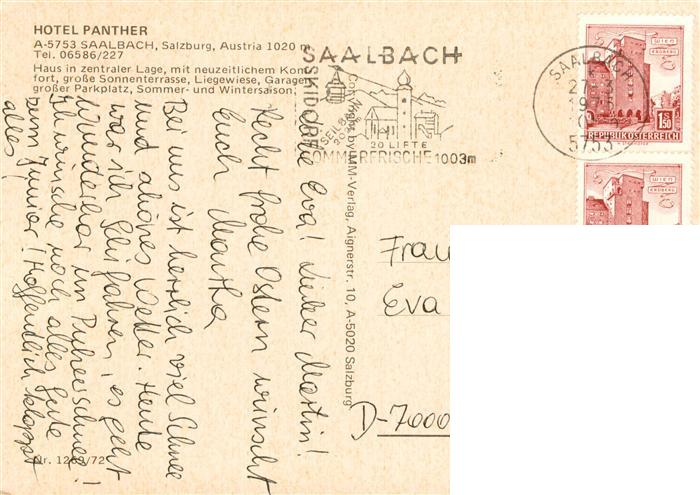 HOTEL PANTHER
A-5753 SAALBACH, Salzburg, Austria 1020 m
Tel. 06586/227
Haus in zentraler Lage, mit neuzeitlichem Kom-
fort, große Sonnenterrasse, Liegewiese, Garagen,
großer Parkplatz, Sommer- und Wintersaison.
SAALBACH
SKIDORF
20 LIFTE
SOMMERFRISCHE 1003m
SAALBACH
5753
WIEN
ERDBERG
1.50
REPUBLIK ÖSTERREICH
WIEN
ERDBERG
Liebe Eva! Lieber Martin!
Recht frohe Ostern wünscht
Euch Martha
Bei uns ist herrlich viel Schnee
und schönes Wetter. Heute
war ich Schifahren, es geht
wunderbar im Pulverschnee!
Ich wünsche noch alles Gute
zum Junior! Hoffentlich klappt
alles!
Copyright by MM-Verlag, Aignerstr. 10, A-5020 Salzburg
Frau
Eva
D-7000
Nr. 1269/72